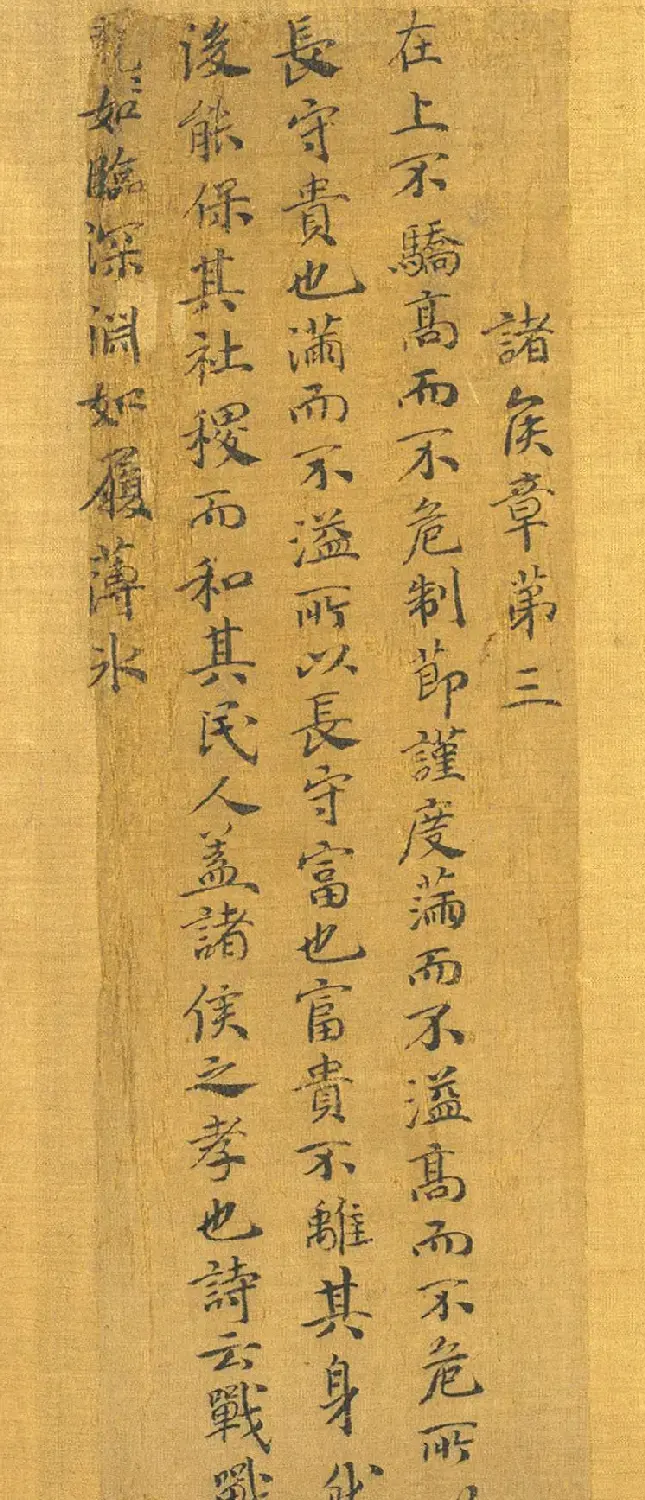 諸侯章第三
在上不驕高而不危制節謹度滿而不溢高而不危所
長守貴也滿而不溢所以長守富也富貴不離其身然
後能保其社稷而和其民人蓋諸侯之孝也詩云戰戰
兢〻如臨深淵如履薄氷